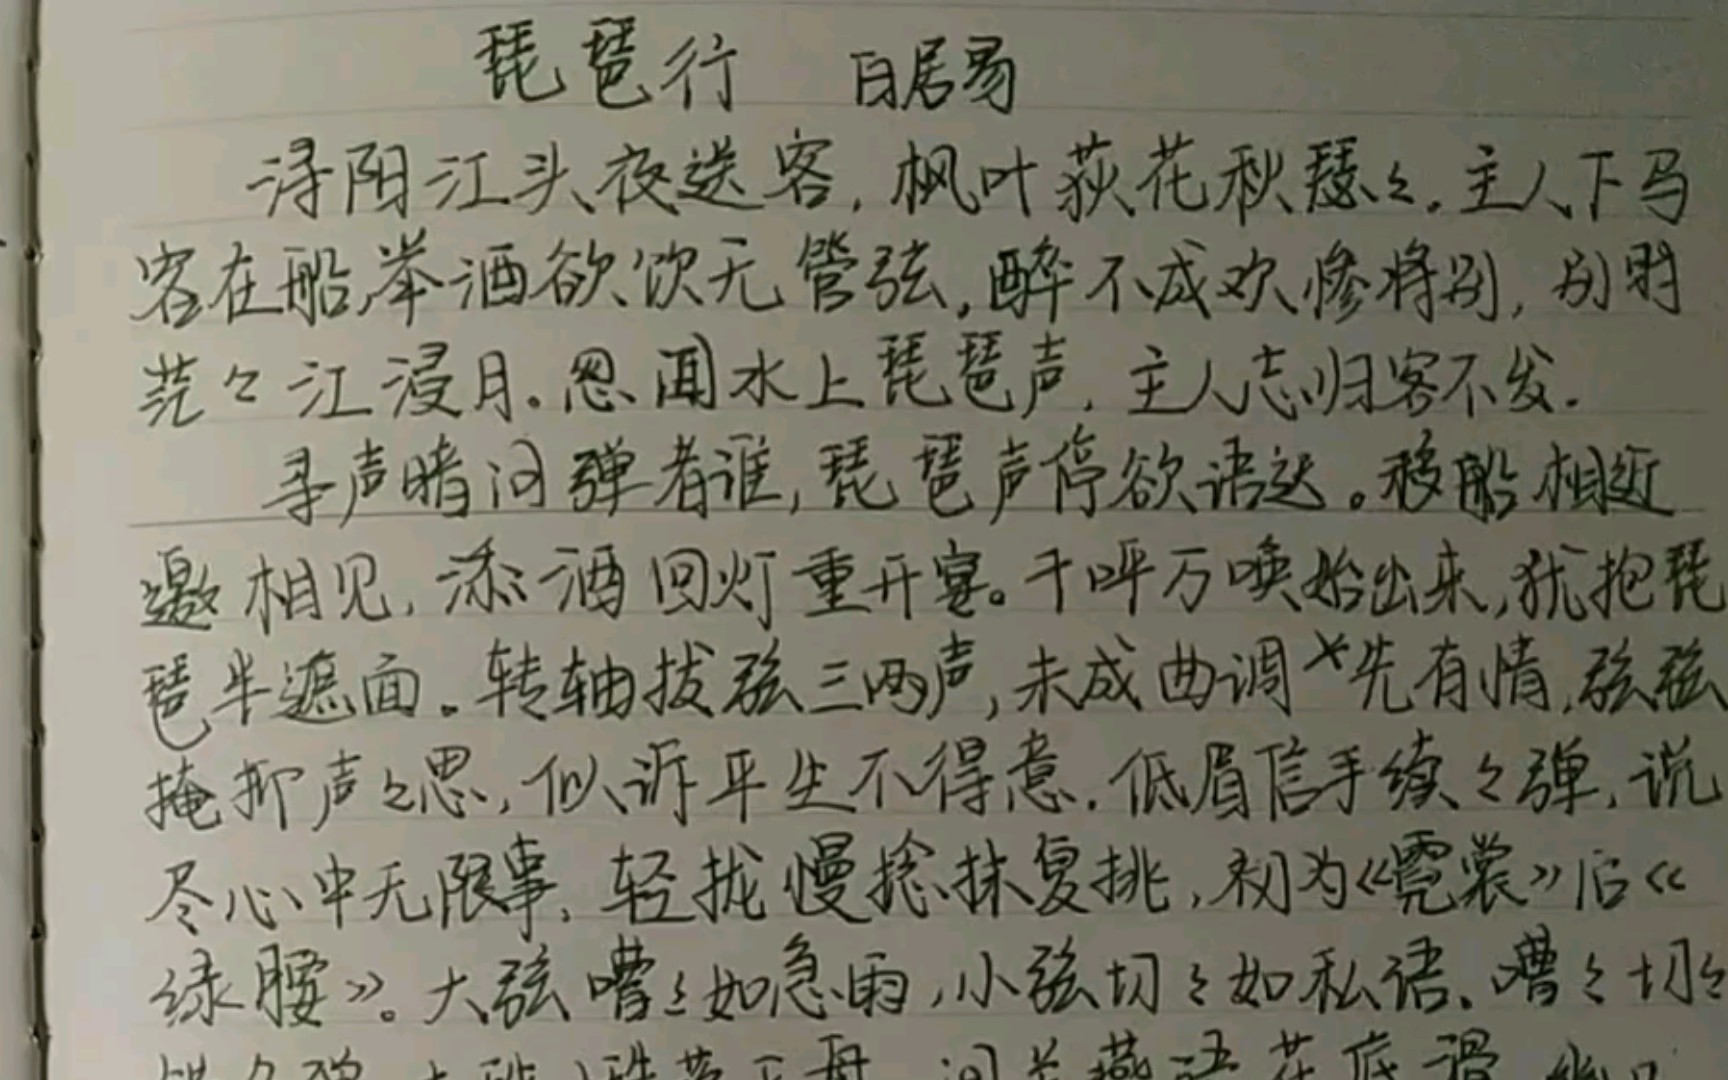 琵琶行 白居易
浔阳江头夜送客,枫叶荻花秋瑟々。主人下马
客在船,举酒欲饮无管弦,醉不成欢惨将别,别时
茫々江浸月。忽闻水上琵琶声,主人忘归客不发.
寻声暗问弹者谁,琵琶声停欲语迟。移船相近
邀相见,添酒回灯重开宴。千呼万唤始出来,犹抱琵
琶半遮面。转轴拔弦三两声,未成曲调先有情,弦弦
掩抑声々思,似诉平生不得意.低眉信手续々弹,说
尽心中无限事,轻拢慢捻抹复挑,初为《霓裳》后《
绿腰》。大弦嘈々如急雨,小弦切々如私语.嘈々切々